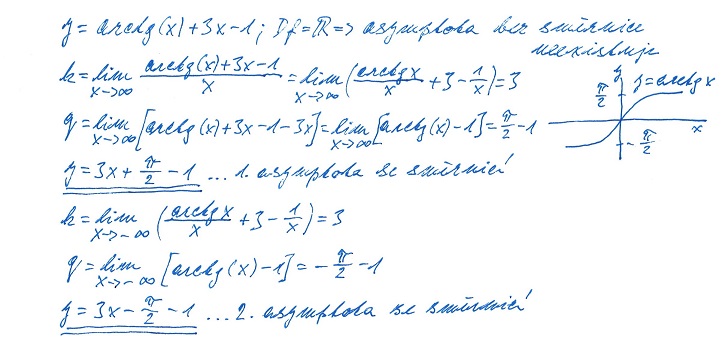 y = arctg(x) + 3x - 1; Df = ℝ => asymptota bez směrnice
neexistuje
k = lim x->∞ (arctg(x) + 3x - 1)/x = lim x->∞ (arctg x/x + 3 - 1/x) = 3
q = lim x->∞ [arctg(x) + 3x - 1 - 3x] = lim x->∞ [arctg(x) - 1] = π/2 - 1
y = 3x + π/2 - 1 ... 1. asymptota se směrnicí
k = lim x->-∞ (arctg x/x + 3 - 1/x) = 3
q = lim x->-∞ [arctg(x) - 1] = -π/2 - 1
y = 3x - π/2 - 1 ... 2. asymptota se směrnicí
y
π/2
y = arctg x
x
-π/2